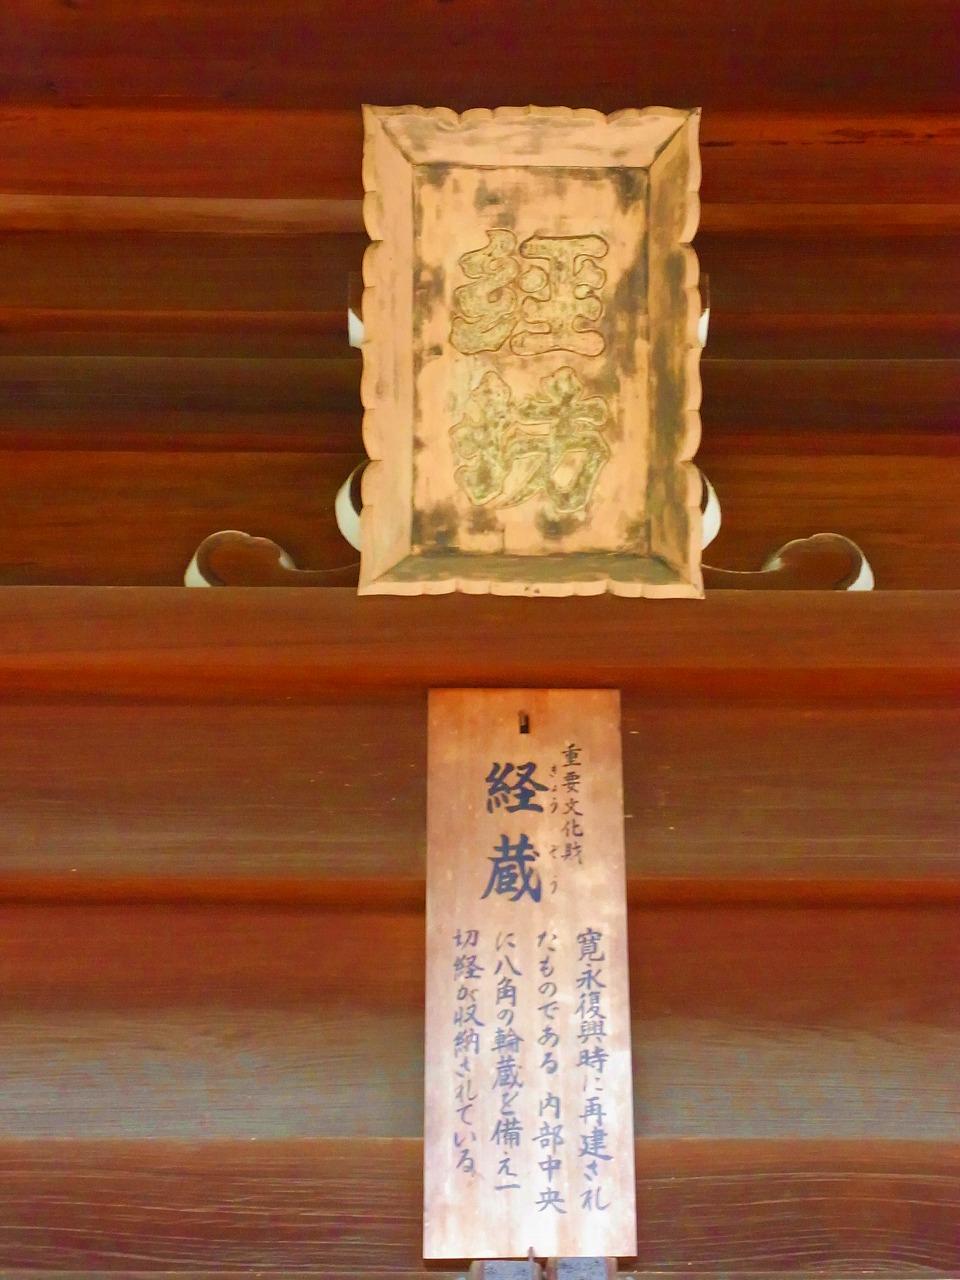 経坊
重要文化財
きょうぞう
経蔵
寛永復興時に再建され
たものである 内部中央
に八角の輪蔵を備え一
切経が収納されている